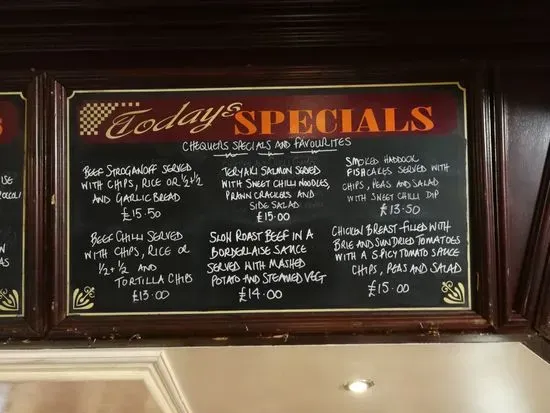 Todays SPECIALS
CHEQUERS SPECIALS AND FAVOURITES
BEEF STROGANOFF SERVED
WITH CHIPS, RICE OR 1/2 + 1/2
AND GARLIC BREAD
£15.50
TERYAKI SALMON SERVED
WITH SWEET CHILLI NOODLES,
PRAWN CRACKERS AND
SIDE SALAD
£15.00
SMOKED HADDOCK
FISHCAKES SERVED WITH
CHIPS, PEAS AND SALAD
WITH SWEET CHILLI DIP
£13.50
BEEF CHILLI SERVED
WITH CHIPS, RICE OR
1/2 + 1/2 AND
TORTILLA CHIPS
£13.00
SLOW ROAST BEEF IN A
BORDERLAISE SAUCE
SERVED WITH MASHED
POTATO AND STEAMED VEG
£14.00
CHICKEN BREAST FILLED WITH
BRIE AND SUNDRIED TOMATOES
WITH A SPICY TOMATO SAUCE
CHIPS, PEAS AND SALAD
£15.00